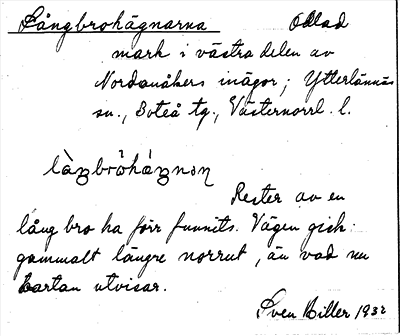 Långbrohägnarna Odlad
mark i västra delen av
Nordanåkers inägor; Ytterlännäs
sn., Boteå tg., Västernorrl. l.
Rester av en
lång bro ha förr funnits. Vägen gick
gammalt längre norrut, än vad nu
kartan utvisar.
Sven Hiller 1932